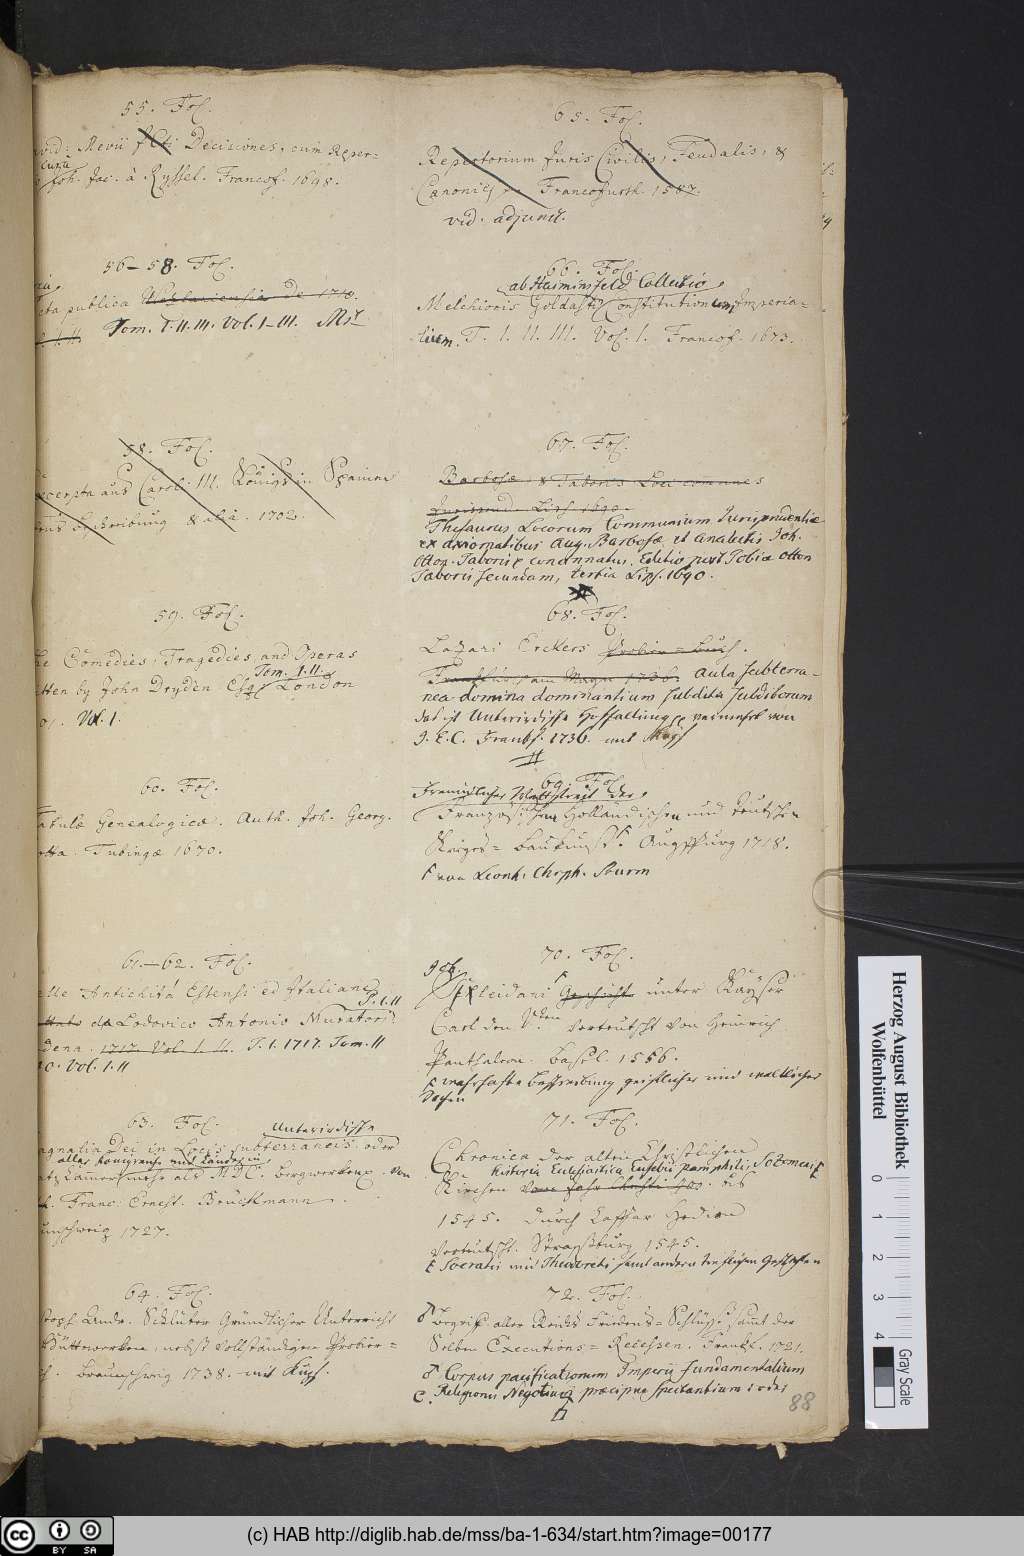 55. Fol.
Mevii Decisiones, cum Reper-
Joh. Jac. à Ryssel. Francof. 1698.
56-58. Fol.
publica Wezlariensia De 1710.
Tom. I. II. III. Vol. I-III. Mst
58. Fol.
Excerpta aus Caroli III. Königs in Spanien
Schreibung & alia. 1702.
59. Fol.
Comedies, Tragedies and Operas
Tom. I. II.
written by John Dryden Esq. London
Vol. 1.
60. Fol.
Tabulæ Genealogicæ. Auth. Joh. Georg.
Tubingæ 1670.
61-62. Fol.
delle Antichità Estensi ed Italiane
P. I. II
Lodovico Antonio Muratori
1717. Vol. I. II. T. I. 1717. Tom. II
Vol. I. II
63. Fol.
Unterirdische
Magnalia Dei in Locis subterraneis oder
aller Königreiche und Länder in
Bergwercken von
Franc: Ernest. Brückmann
1727.
64. Fol.
Andr. Schlüter Gründlicher Unterricht
Hüttewercken, nebst vollständigen Probier-
Braunschweig 1738. mit Kupf.
65. Fol.
Repertorium Juris Civilis, Feudalis, &
Canonici Francofurth. 1587.
vid. adjunct.
66. Fol.
ab Haiminsfeld Collectio
Melchioris Goldasti Constitutionum Imperia-
lium. T. I. II. III. Vol. I. Francof. 1673.
67. Fol.
Barbosæ & Taboris Loci comunes
Lips 1690.
Thesaurus Locorum Communium Jurisprudentiæ
ex axiomatibus Aug. Barbosæ et analectis Joh.
Otton. Taboris concinnatus. Editio post Tobiæ Otton
Taboris secundam, tertia Lips. 1690.
68. Fol.
Lazari Erckers Probier-Buch.
1736. Aula subterra-
nea domina dominantium subdita subditorum
das ist Unterirdische Hofhaltung vermehrt von
J. E. C. Franckf. 1736. mit Kupf
69. Fol.
Freundlicher Wettstreit der
Französischen Holländischen und Teutschen
Krieges-Baukunst. Augspurg 1718.
von Leonh. Chrph. Sturm
70. Fol.
Joh.
Sleidani Geschicht unter Kayser
Carl den Vten verteutscht von Heinrich
Pantaleon. Basel. 1556.
wahrhafte Beschreibung geistlicher und weltlicher
Sachen
71. Fol.
Chronica der alten Christlichen
Historia Ecclesiastica Eusebii pamphilii, Sozomeni
Kirchen Vom Jahr Christi bis
1545. durch Caspar Hedion
verteutscht. Strassburg 1545.
Socratis und Theodoreti samt andern
72. Fol.
Begriff aller Reichs Friedens-Schlüsse samt der
Selben Executions-Recessen. Franckf. 1721.
Corpus pacificationum Imperii fundamentalium
Religionis Negotium præcipue spectantium: oder
88
Herzog August Bibliothek
Wolfenbüttel
0 1 2 3 4
Gray Scale
CC BY SA
(c) HAB http://diglib.hab.de/mss/ba-1-634/start.htm?image=00177